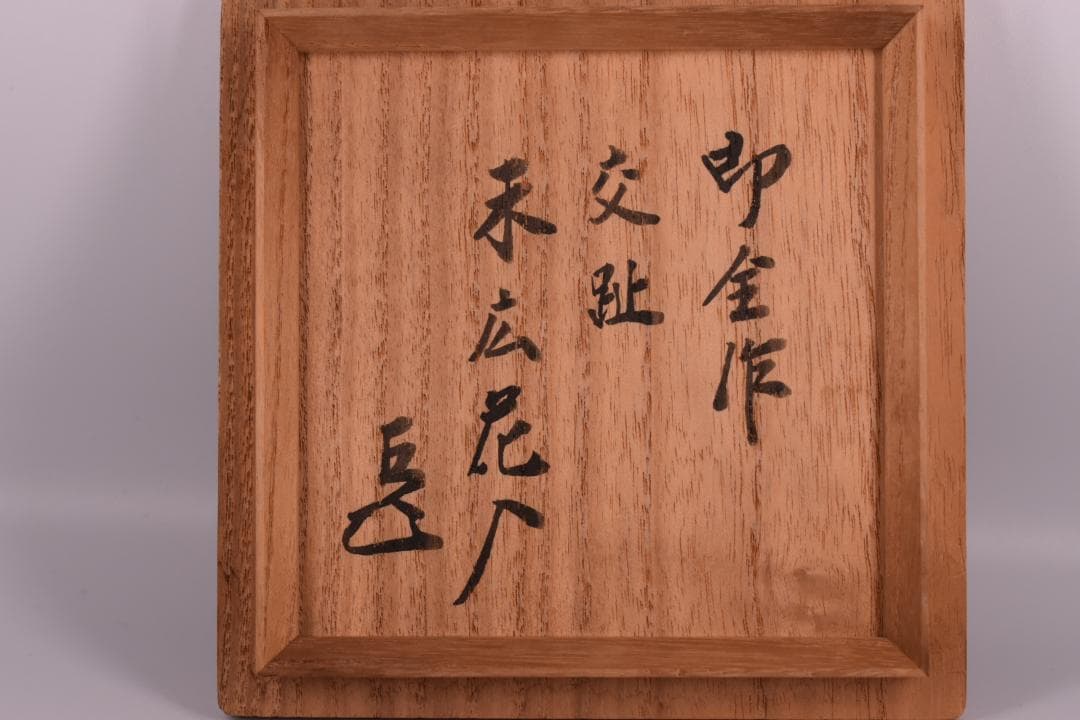 即全作
交趾
末広花入